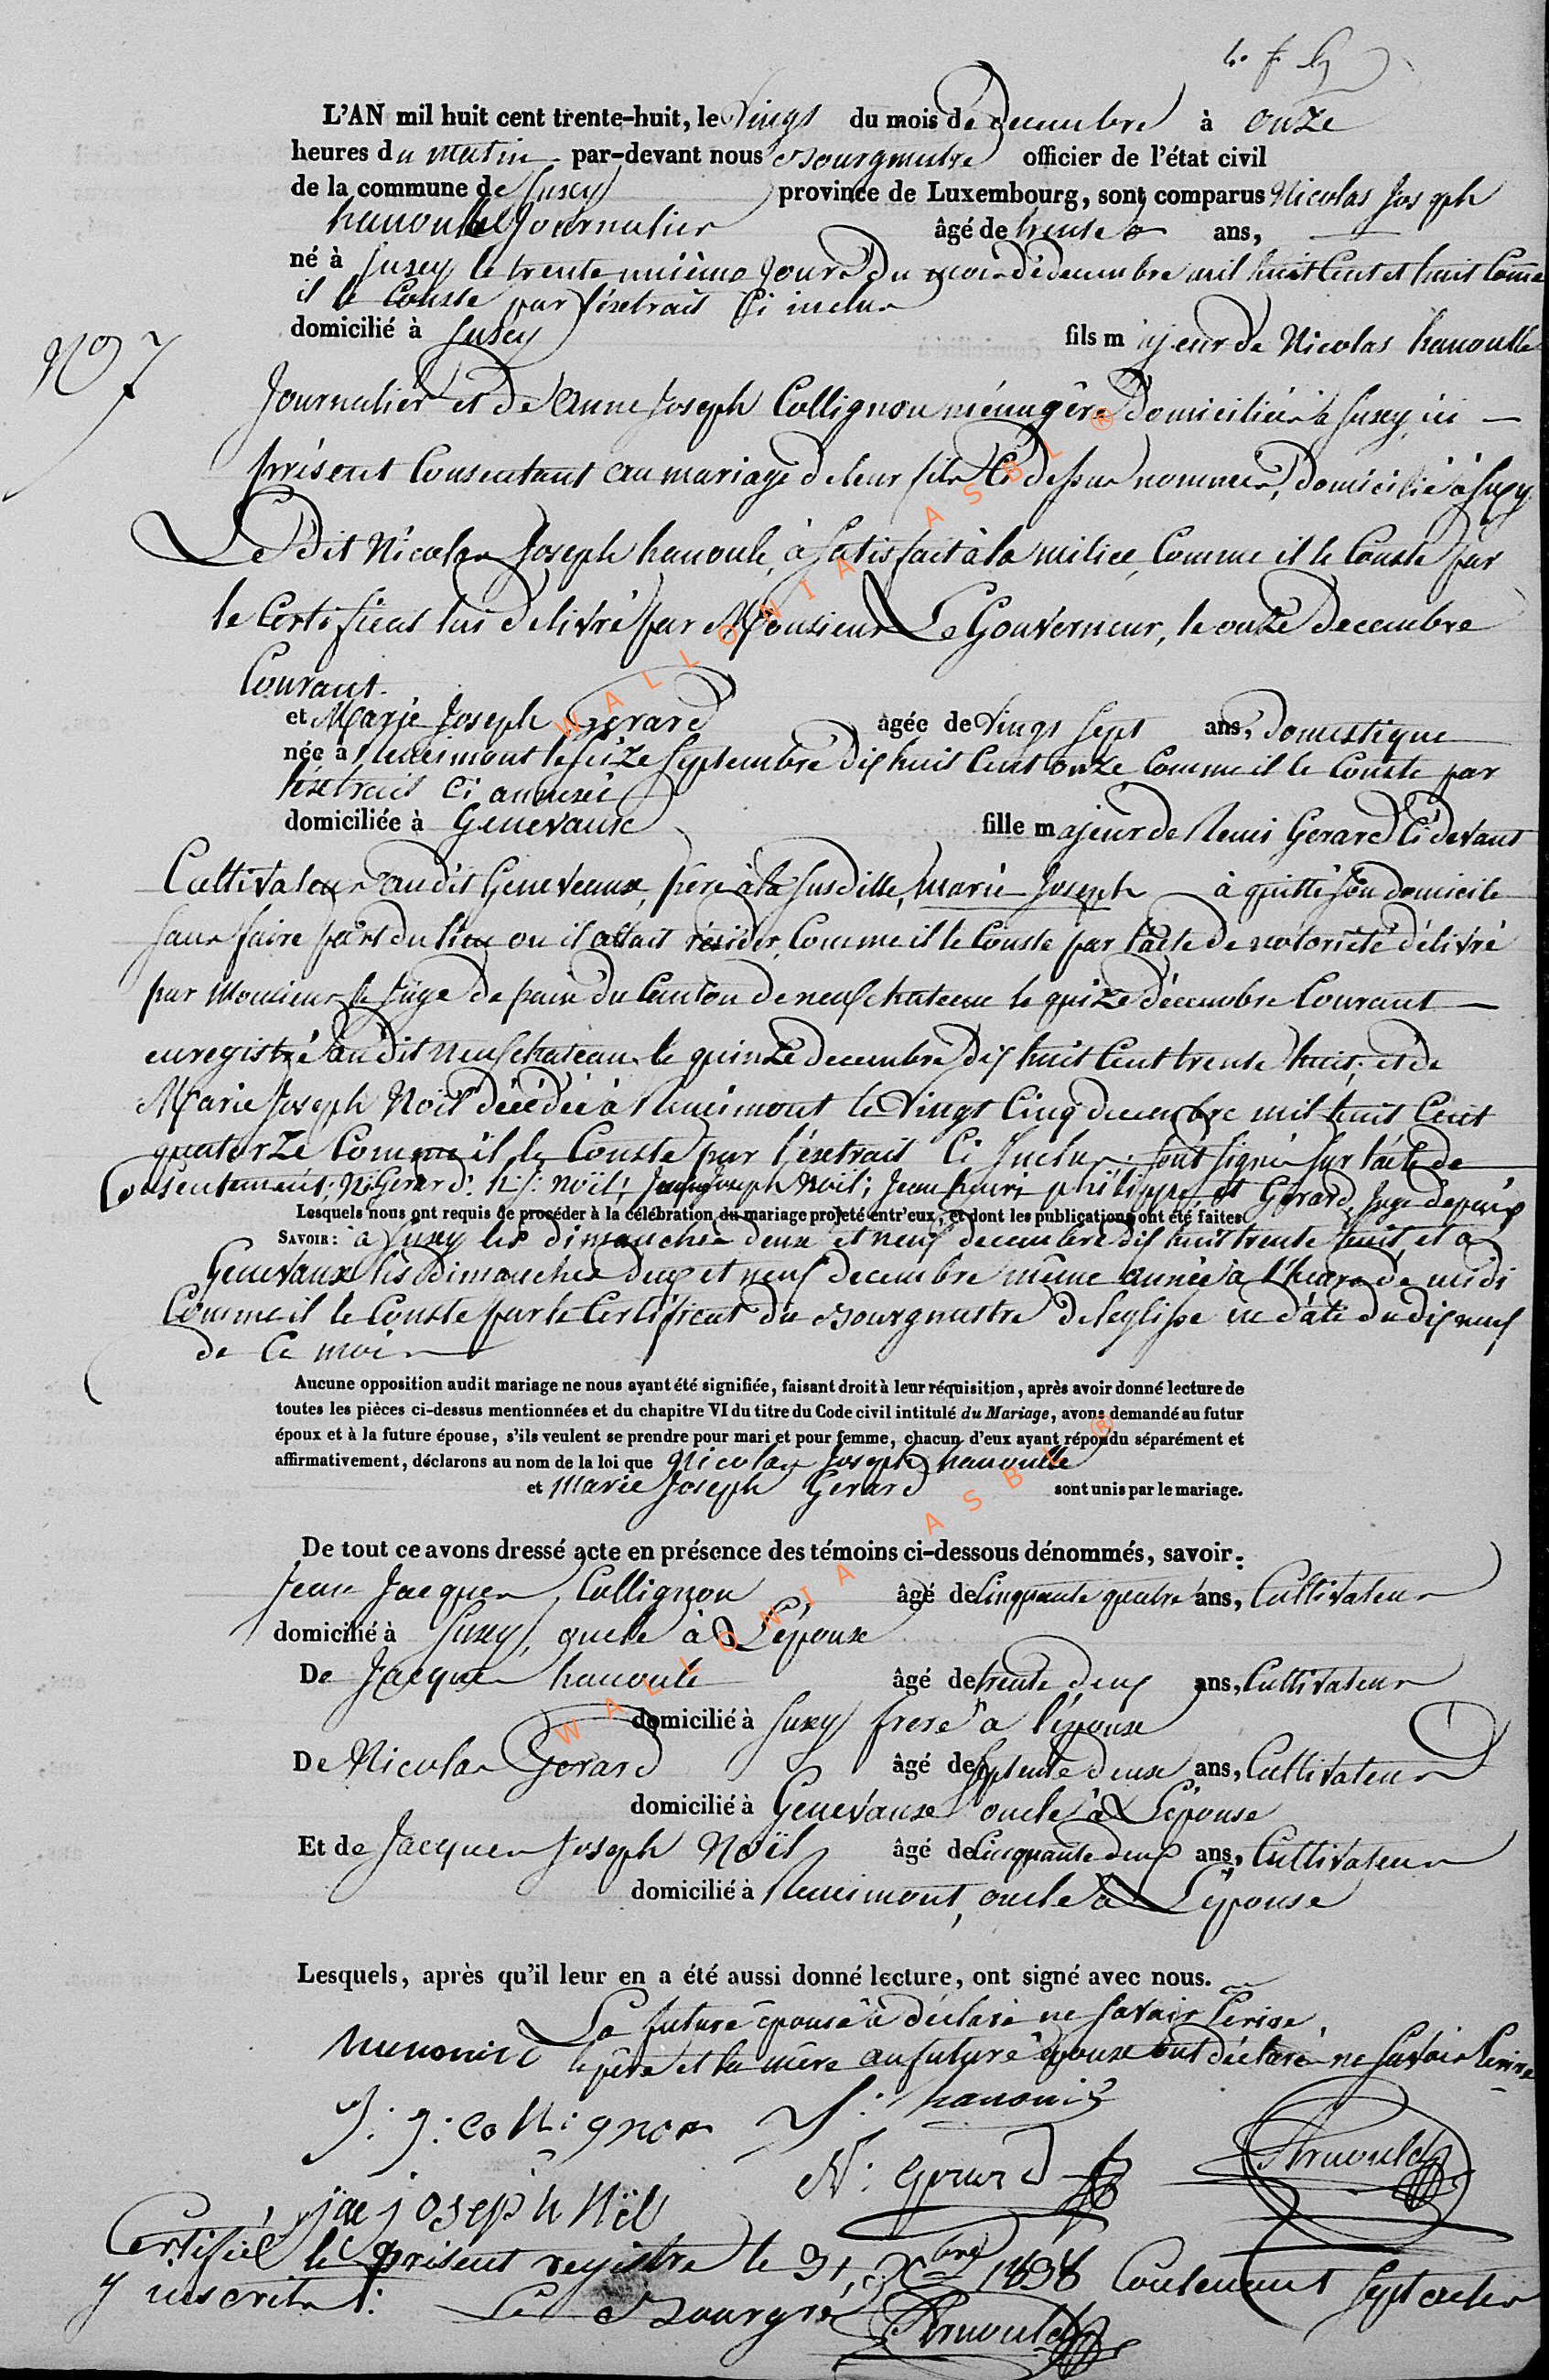 L'AN mil huit cent trente-huit, le Vingt du mois de decembre à onze
heures du matin par-devant nous Bourgmestre officier de l'état civil
de la commune de Suxey province de Luxembourg, sont comparus Nicolas Joseph
hanoulle Journalier âgé de trente ans,
né à Suxey le trente unième Jour du mois de decembre mil huit Cent et huit Come
il le Conste par l'éxtrait Ci inclus
domicilié à Suxey fils majeur de Nicolas hanoulle
No 7
Journalier et de Anne Joseph Collignon ménagêre domiciliés à Suxey, ici
présent Consentant au mariage de leur fils Ci dessus nommés, domicilié à Suxy
Le Dit Nicolas Joseph hanoule, à Satisfait à la milice, Comme il le Conste par
le Certificat lui delivré par Monsieur Le Gouverneur, le onze Decembre
Courant.
et Marie Joseph Gerard agée de Vingt Sept ans, Domestique
née à Menimont le Seize Septembre dix huit Cent onze Comme il le Conste par
l'éxtrait Ci annexé
domiciliée à Genevaux fille majeur de Remi Gerard Ci devant
Cultivateur audit Geneveaux, père à la Susditte, Marie Joseph à quitté Son domicile
Sans faire part du lieu ou il allait résider, Comme il le Conste par l'acte de notoriété délivré
par Monsieur le Juge de paix du Canton de neufchateau le quize décembre Courant
enregistré audit Neufchateau le quinze decembre dix huit Cent trente huit; et de
Marie Joseph Noël décédée à Menimont le Vingt Cinq decembre mil huit Cent
quatorze Comme il le Conste par l'éxtrait Ci Inclus. sont Signés Sur l'acte de
Consentement; N: Gerard: h: J: noël; Jean Joseph Noël; Jean henri philippe, et Gerard, Juge de paix
Lesquels nous ont requis de procéder à la célébration du mariage projeté entr'eux, et dont les publications ont été faites
SAVOIR: à Suxey les dimanches deux et neuf decembre dix huit trente huit, et à
Genevaux les dimanches deux et neuf decembre même année à l'heure de midi
Comme il le Conste par le Certificat du Bourgmestre de leglise en date du dix neuf
de Ce mois
Aucune opposition audit mariage ne nous ayant été signifiée, faisant droit à leur réquisition, après avoir donné lecture de
toutes les pièces ci-dessus mentionnées et du chapitre VI du titre du Code civil intitulé du Mariage, avons demandé au futur
époux et à la future épouse, s'ils veulent se prendre pour mari et pour femme, chacun d'eux ayant répondu séparément et
affirmativement, déclarons au nom de la loi que Nicolas Joseph hanoulle
et Marie Joseph Gerard sont unis par le mariage.
De tout ce avons dressé acte en présence des témoins ci-dessous dénommés, savoir:
Jean Jacques Collignon âgé de Cinquante quatre ans, Cultivateur
domicilié à Suxey, oncle à L'époux
De Jacques hanoule âgé de trente deux ans, Cultivateur
domicilié à Suxey frere à l'époux
De Nicolas Gerard âgé de Septente deux ans, Cultivateur
domicilié à Genevaux oncle à L'épouse
Et de Jacques Joseph Noël âgé de Cinquante deux ans, Cultivateur
domicilié à Menimont, oncle à L'épouse
Lesquels, après qu'il leur en a été aussi donné lecture, ont signé avec nous.
La future épouse à déclaré ne Savoir Ecrire
le père et la mère au future époux ont déclaré ne Savoir Ecrire
J: J: Collignon J: hanoule
N: Gerard Arnould
jac joseph Nöel
Certifié le présent registre le 31 Xbre 1838 Contenant Sept actes
y inscrits: Le Bourgre
Arnould
WALLONIA ASBL ®
WALLONIA ASBL ®